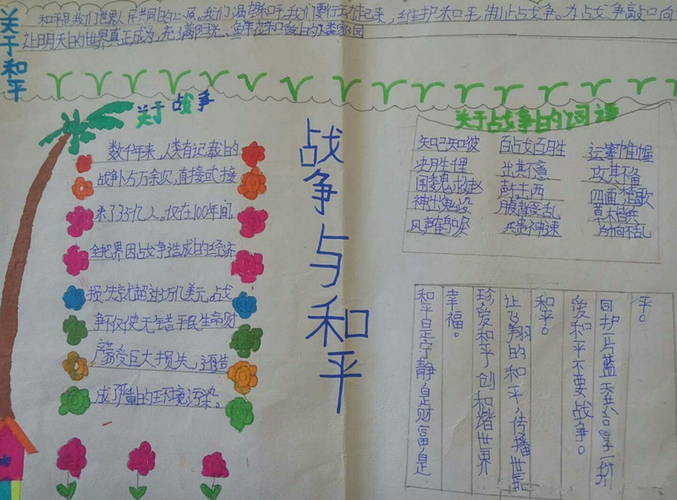 关于和平
和平是我们世界人民共同的心愿,我们渴望和平,我们要行动起来,维护和平,制止战争。为战争敲口向
让明天的世界真正成为,充满阳光、鲜花和
关于战争
数千年来,人类有记载的
战争
来了35亿人。仅在100年间,
全世界因战争造成的经济
损失就超过万亿美元。战
争不仅使无辜平民生命财
产蒙受巨大损失,还造
成严重的环境污染。
战争与和平
关于战争的词语
知己知彼 百占文百月生 运筹帷幄
决胜千里 出其不意 攻其不备
围魏救赵 声东击西 四面楚歌
神出鬼没 腹背受乱 草木皆兵
风声鹤唳 兵贵神速
平。
同护一片蓝天共享一抔
爱和平不要战争。
和平。
让飞翔的和平,传播世界
珍爱和平创和谐世界
幸福。
和平是宁静,是财富,是